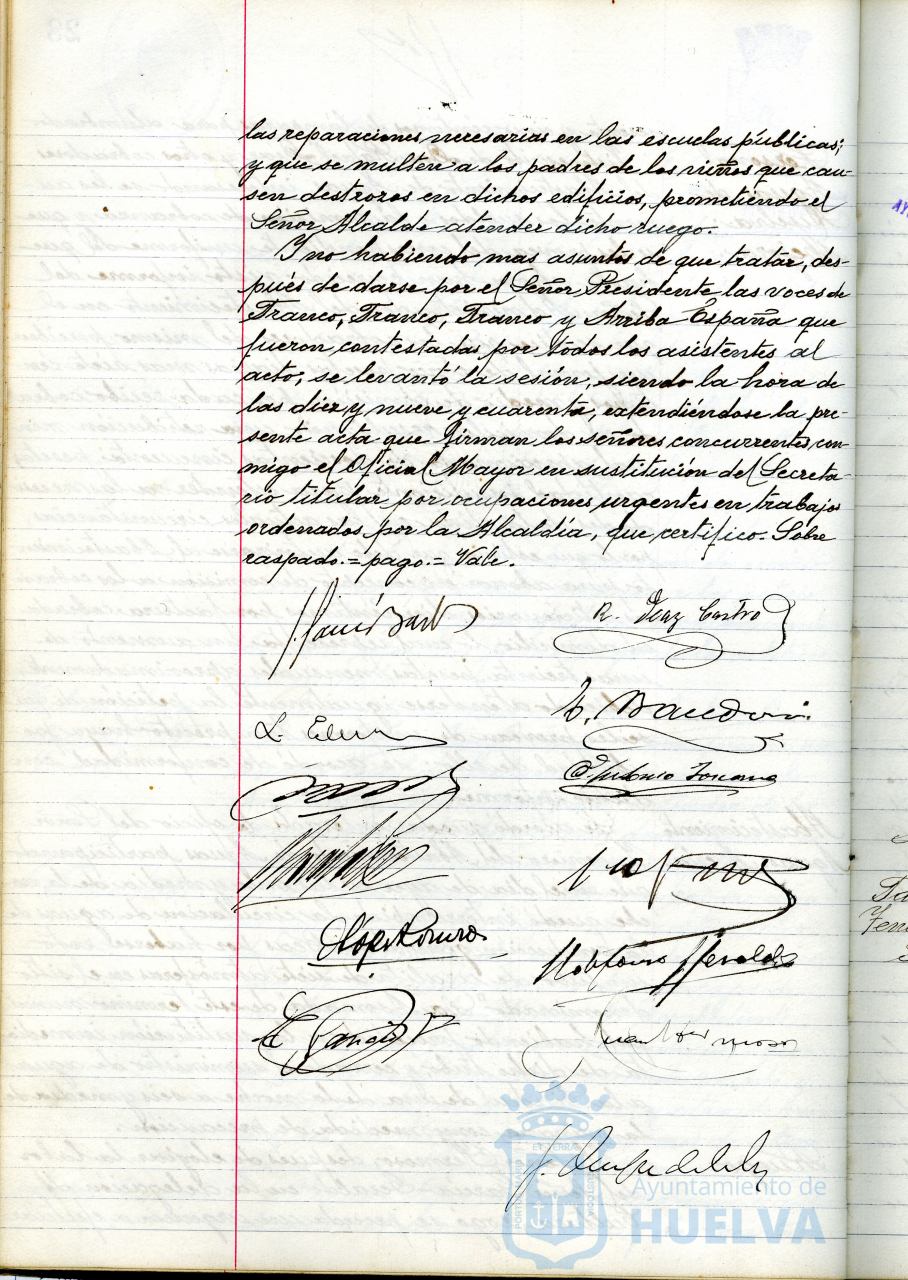 las reparaciones necesarias en las escuelas públicas;
y que se multen a los padres de los niños que cau-
sen destrozos en dichos edificios, prometiendo el
Señor Alcalde atender dicho ruego.
Y no habiendo mas asuntos de que tratar, des-
pués de darse por el Señor Presidente las voces de
Franco, Franco, Franco y Arriba España que
fueron contestadas por todos los asistentes al
acto, se levantó la sesión, siendo la hora de
las diez y nueve y cuarenta, extendiéndose la pre-
sente acta que firman los señores concurrentes, con-
migo el Oficial Mayor en sustitución del Secreta-
rio titular por ocupaciones urgentes en trabajos
ordenados por la Alcaldía, que certifico. Sobre
raspado.=pago.=Vale.
R. Diaz Castro
Ayuntamiento de
HUELVA